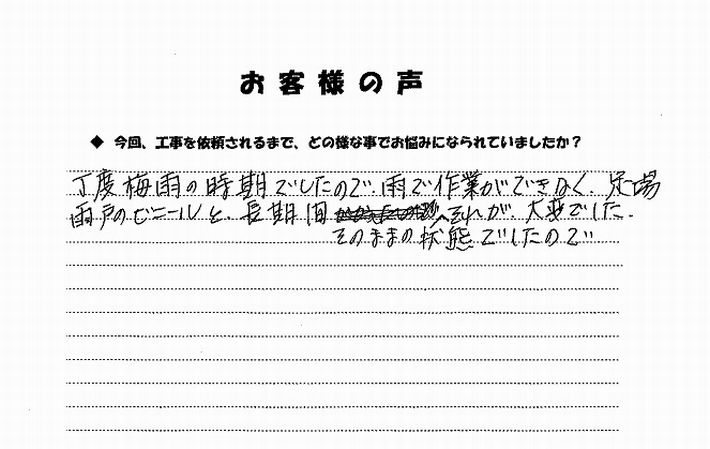 お客様の声
◆ 今回、工事を依頼されるまで、どの様な事でお悩みになられていましたか？
丁度梅雨の時期でしたので、雨で作業ができなく、足場
雨戸のビニールと、長期間 それが、大変でした。
そのままの状態でしたので